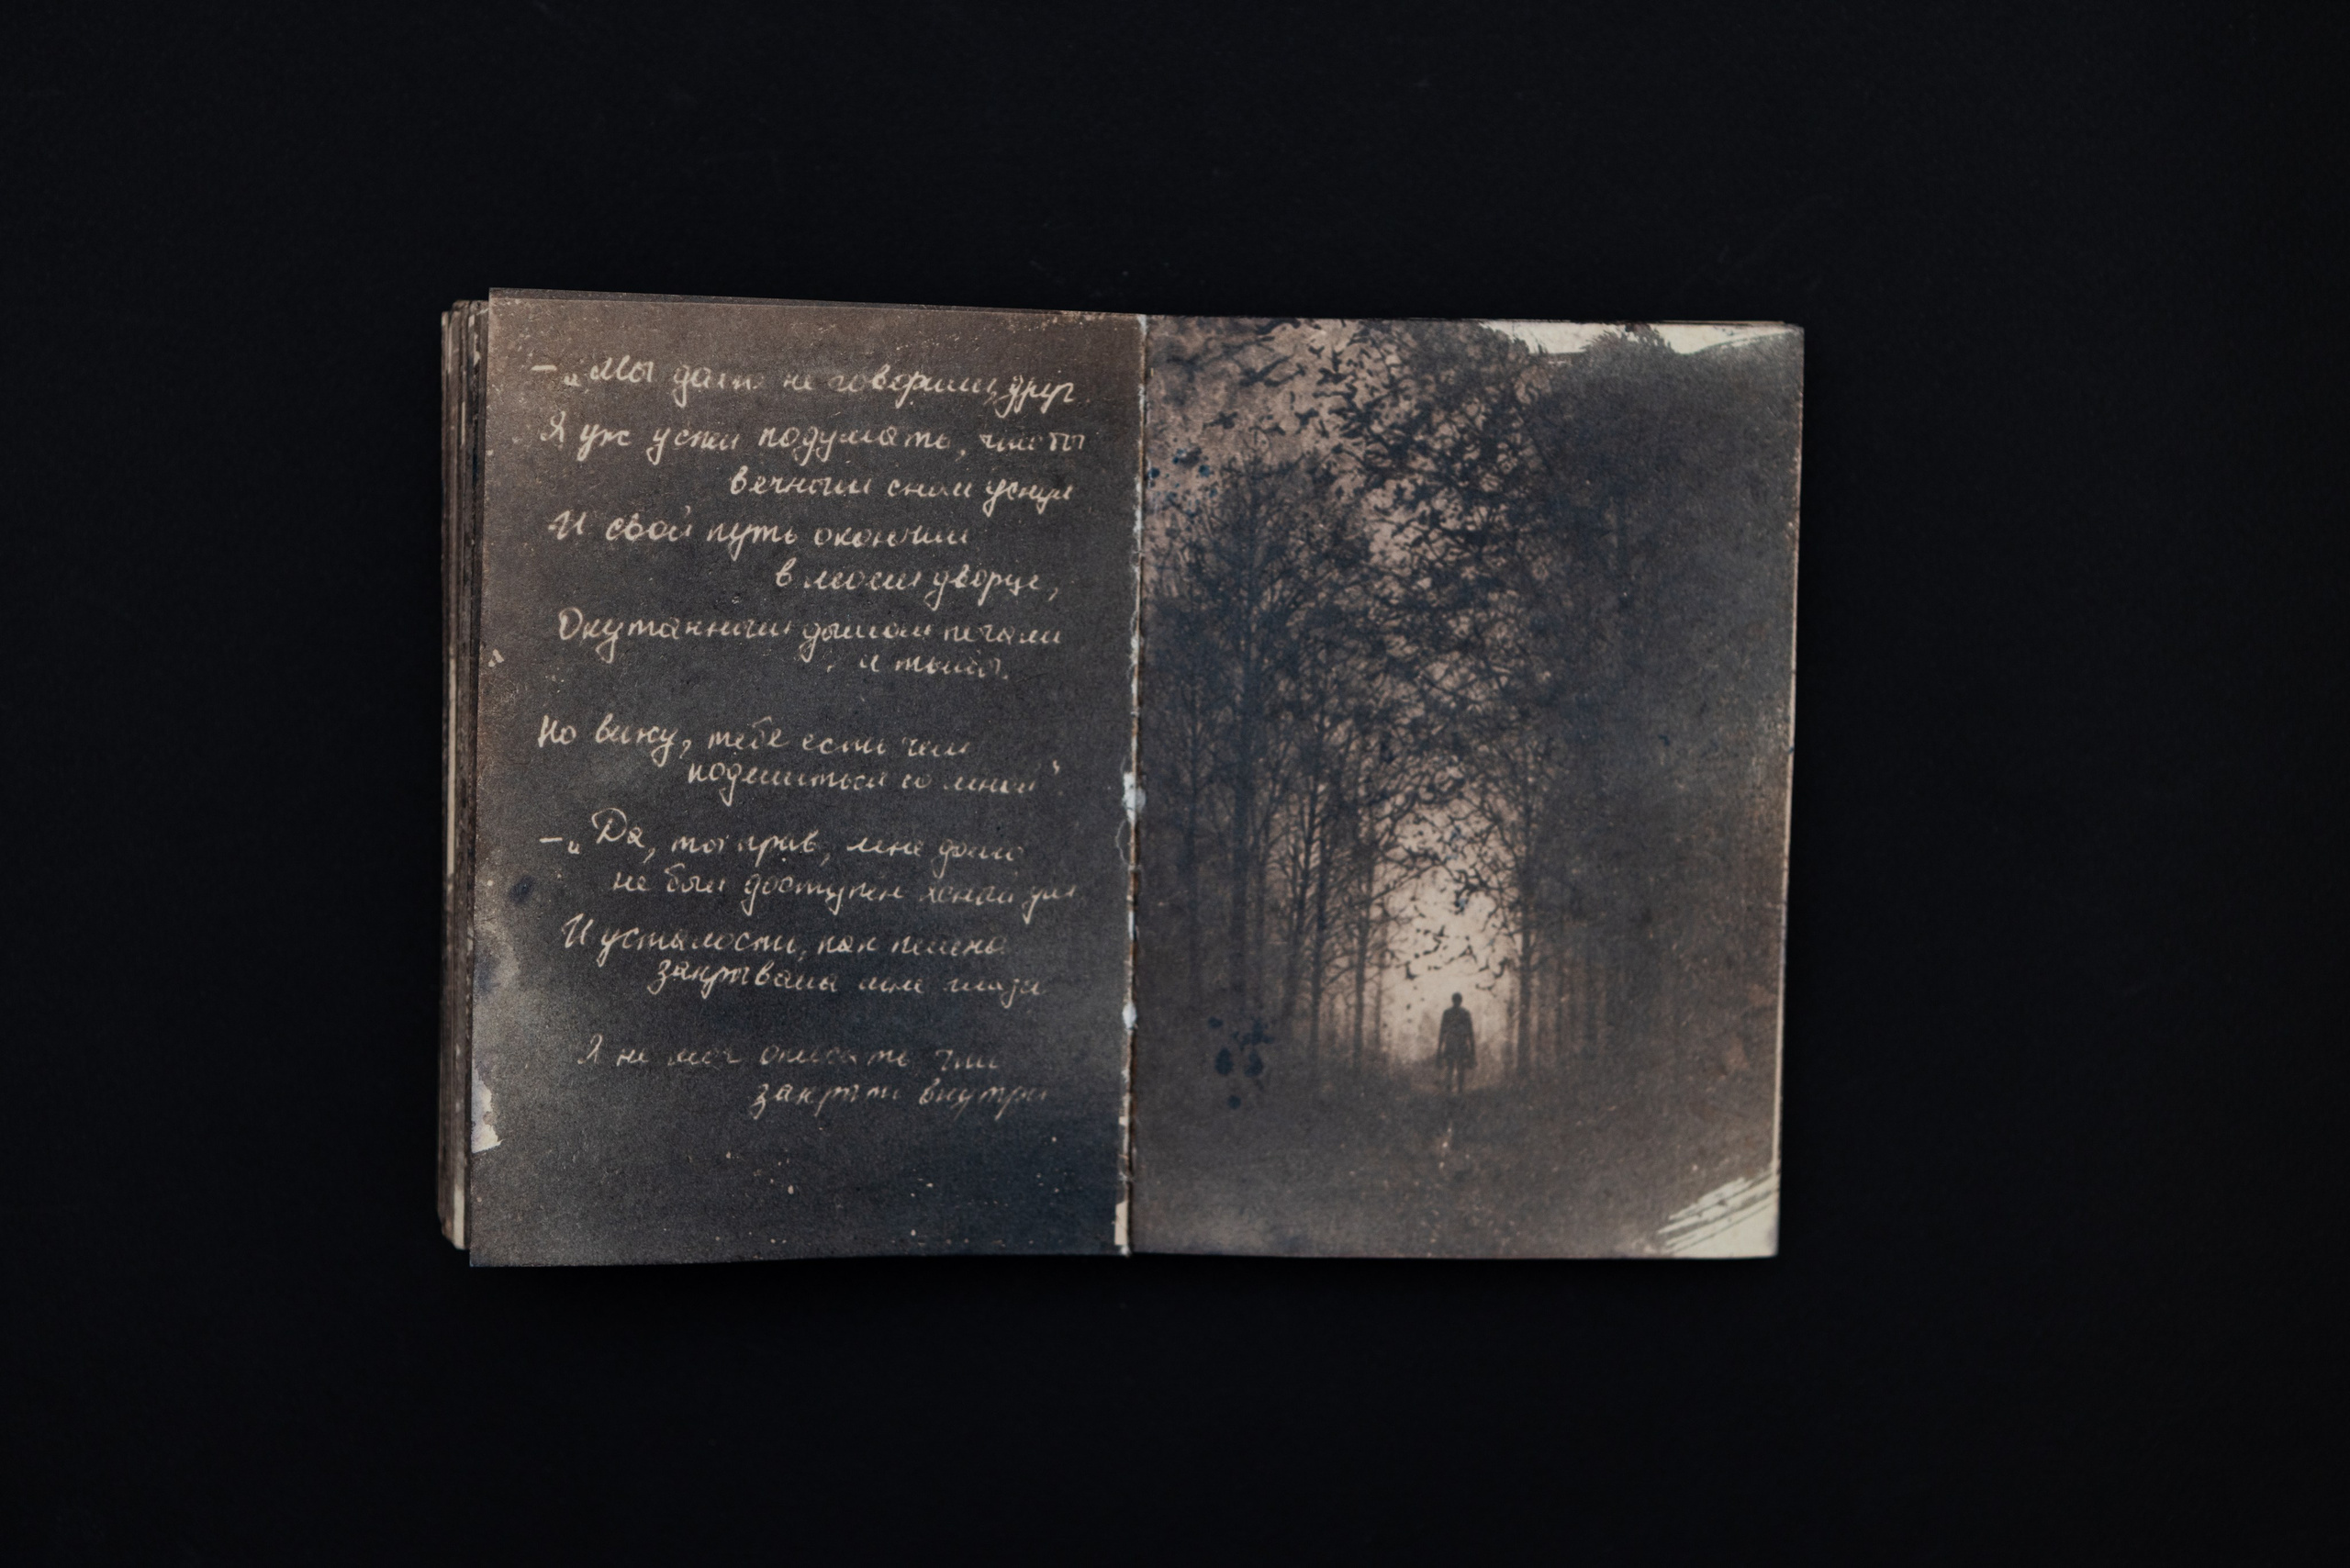 – „Мы давно не говорили, друг
Я уж успел подумать, что ты
вечным сном уснул
И свой путь окончил
в моём дворце,
Окутанным дымом печали
и тьмы.
Но вижу, тебе есть чем
поделиться со мной"
– „Да, ты прав, мне давно
не был доступен
И усталости, как пелена
закрывала мне глаза
Я не мог описать, что
закрыто внутри